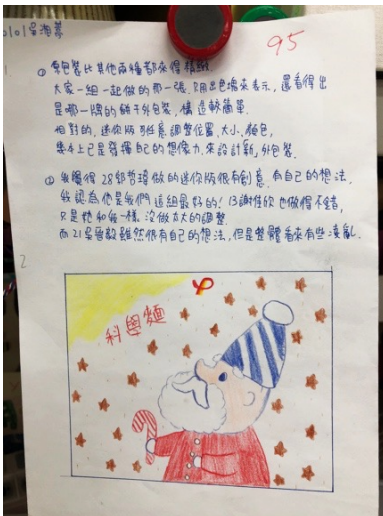 95
① 原包裝比其他兩種都來得精緻.
大家一組一起做的那一張, 只用色塊來表示, 還看得出
是哪一牌的餅干外包裝, 構造較簡單.
相對的, 迷你版 班意 調整位置、大小、顏色,
基本上已是發揮自己的想像力, 來設計新,外包裝.
② 我覺得 28 哲瑋做的迷你版很有創意, 有自己的想法,
我認為他是我們這組最好的! 13謝 也做得不錯,
只是她和我一樣, 沒做太大的調整.
而 21 毅雖然很有自己的想法, 但是整體看來有些凌亂.
2
科學麵